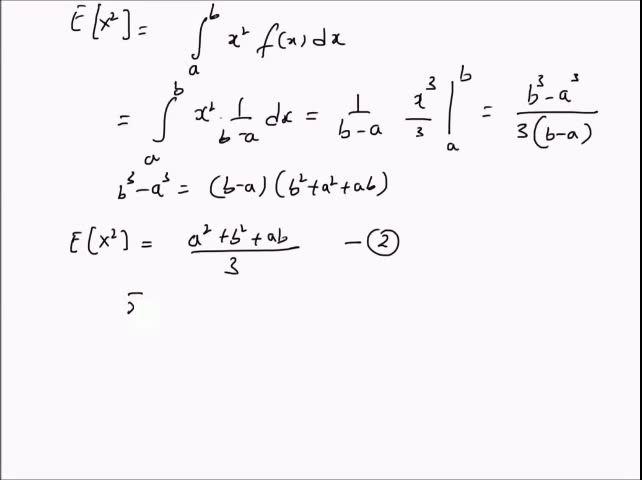 E[x²] = ∫ₐᵇ x² f(x) dx
= ∫ₐᵇ x² · 1/(b-a) dx = 1/(b-a) x³/3 |ₐᵇ = (b³-a³)/(3(b-a))
b³-a³ = (b-a)(b²+a²+ab)
E[x²] = (a²+b²+ab)/3 — ②